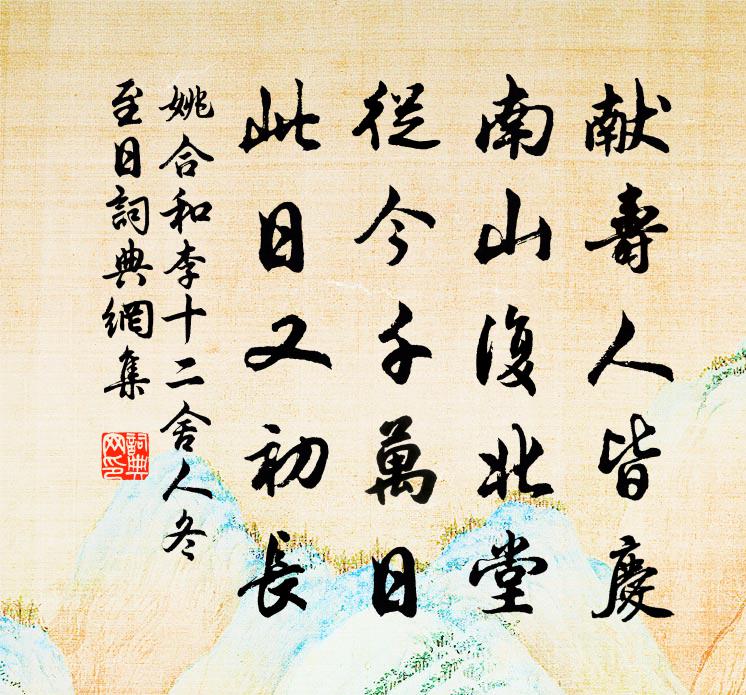 献壽人皆慶
南山復北堂
從今千萬日
此日又初長
姚合和李十二舍人冬
至日詞典網集
詞典網印